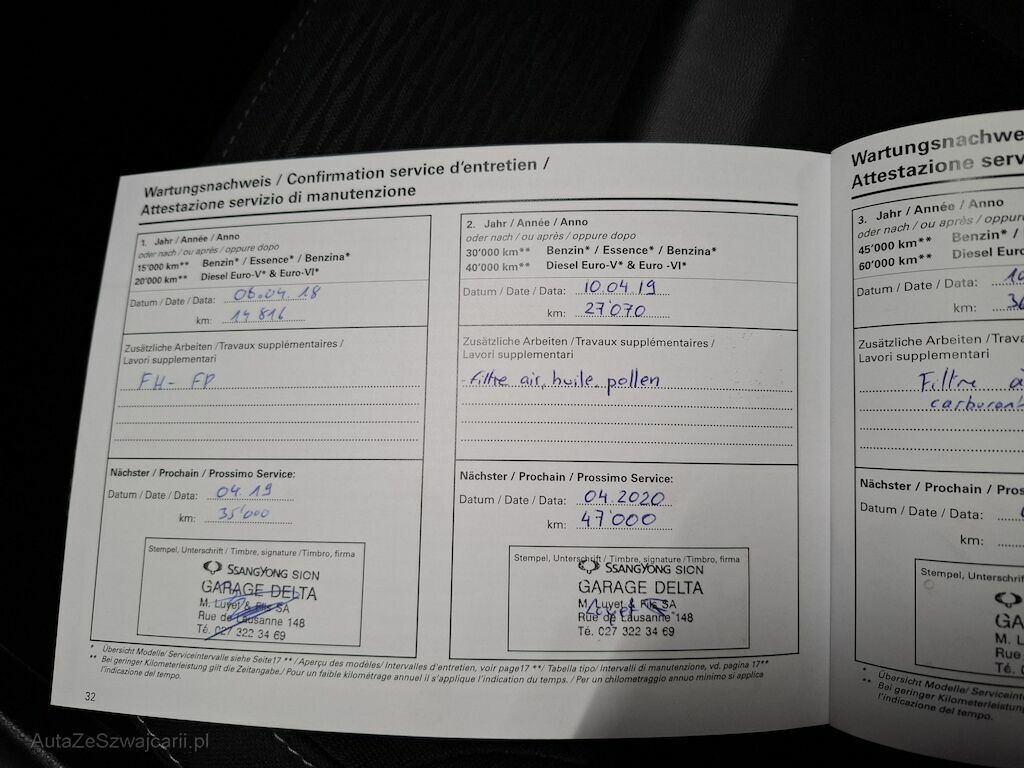 Wartungsnachweis / Confirmation service d'entretien /
Attestazione servizio di manutenzione
1. Jahr / Année / Anno
oder nach / ou après / oppure dopo
15'000 km** Benzin* / Essence* / Benzina*
20'000 km** Diesel Euro-V* & Euro-VI*
Datum / Date / Data: 06.04.18
km: 14'816
Zusätzliche Arbeiten / Travaux supplémentaires /
Lavori supplementari
FH- FP
Nächster / Prochain / Prossimo Service:
Datum / Date / Data: 04.19
km: 35'000
Stempel, Unterschrift / Timbre, signature / Timbro, firma
SSANGYONG SION
GARAGE DELTA
M. Luyet & Fils SA
Rue de Lausanne 148
Té. 027 322 34 69
2. Jahr / Année / Anno
oder nach / ou après / oppure dopo
30'000 km** Benzin* / Essence* / Benzina*
40'000 km** Diesel Euro-V* & Euro -VI*
Datum / Date / Data: 10.04.19
km: 27'070
Zusätzliche Arbeiten / Travaux supplémentaires /
Lavori supplementari
- Filtre air, huile, pollen
Nächster / Prochain / Prossimo Service:
Datum / Date / Data: 04.2020
km: 47'000
Stempel, Unterschrift / Timbre, signature / Timbro, firma
SSANGYONG SION
GARAGE DELTA
M. Luyet & Fils SA
Rue de Lausanne 148
Tél. 027 322 34 69
* Übersicht Modelle/ Serviceintervalle siehe Seite17 ** / Aperçu des modèles/ Intervalles d'entretien, voir page17 **/ Tabella tipo/ Intervalli di manutenzione, vd. pagina 17**
** Bei geringer Kilometerleistung gilt die Zeitangabe./ Pour un faible kilométrage annuel il s'applique l'indication du temps. / Per un chilometraggio annuo minimo si applica
l'indicazione del tempo.
32
Wartungsnachwe
Attestazione serv
3. Jahr / Année / Anno
oder nach / ou après / oppu
45'000 km** Benzin* /
60'000 km** Diesel Euro
Datum / Date / Data: 10
km: 3
Zusätzliche Arbeiten / Trava
Lavori supplementari
Filtre
carburant
Nächster / Prochain / Pros
Datum / Date / Data:
km:
Stempel, Unterschri
GA
M. L
Rue
Té. 0
* Übersicht Modelle/ Serviceinter
** Bei geringer Kilometerleistung
l'indicazione del tempo.
AutaZeSzwajcarii.pl